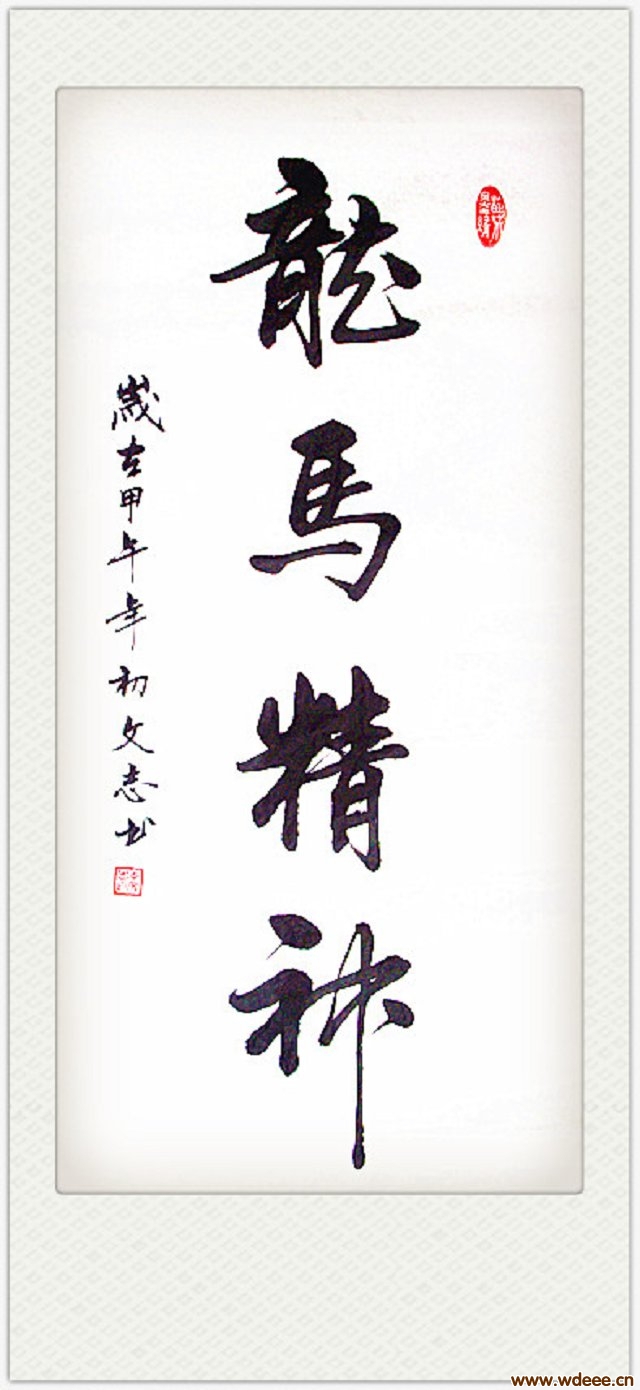 龍馬精神
歲在甲午年初文志书
www.wdeee.cn